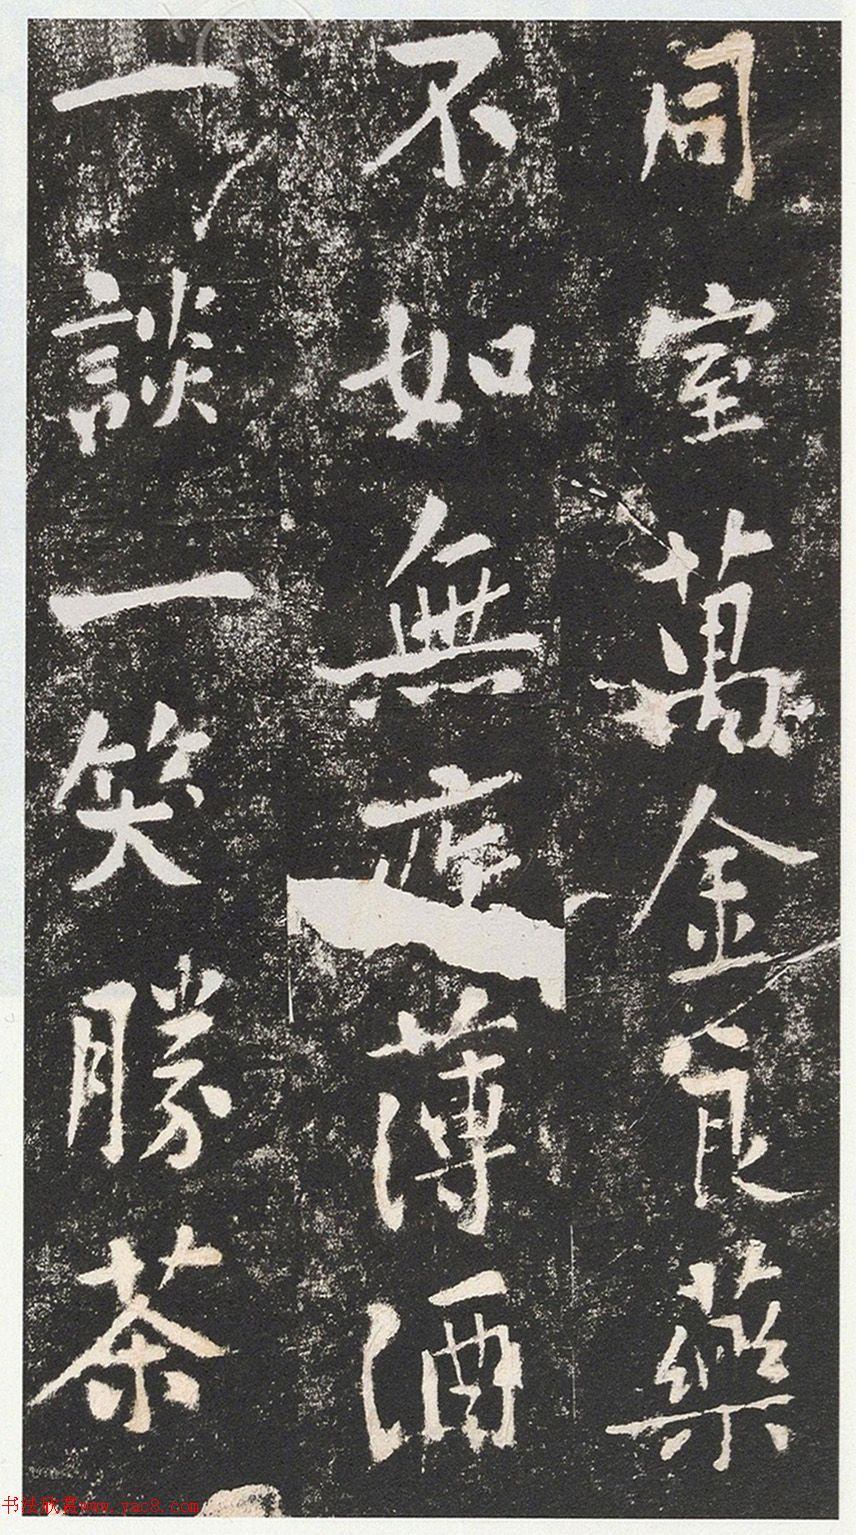 同室萬金良藥
不如無疾薄酒
一談一笑勝茶
书法欣赏www.yac8.com